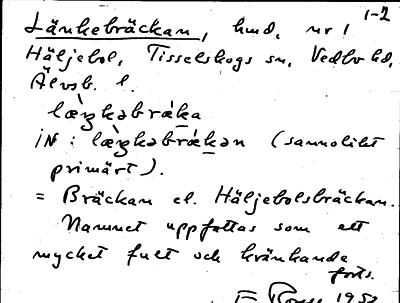 1-2
Länkebräckan, hmd. nr 1
Häljebol, Tisselskogs sn, Vedbo hd,
Älvsb. l.
læ̀ŋkəbràka
iN: læ̀ŋkəbràkən (sannolikt
primärt).
= Bräckan el. Häljebolsbräckan.
Namnet uppfattas som ett
mycket fult och kränkande
forts.
1952